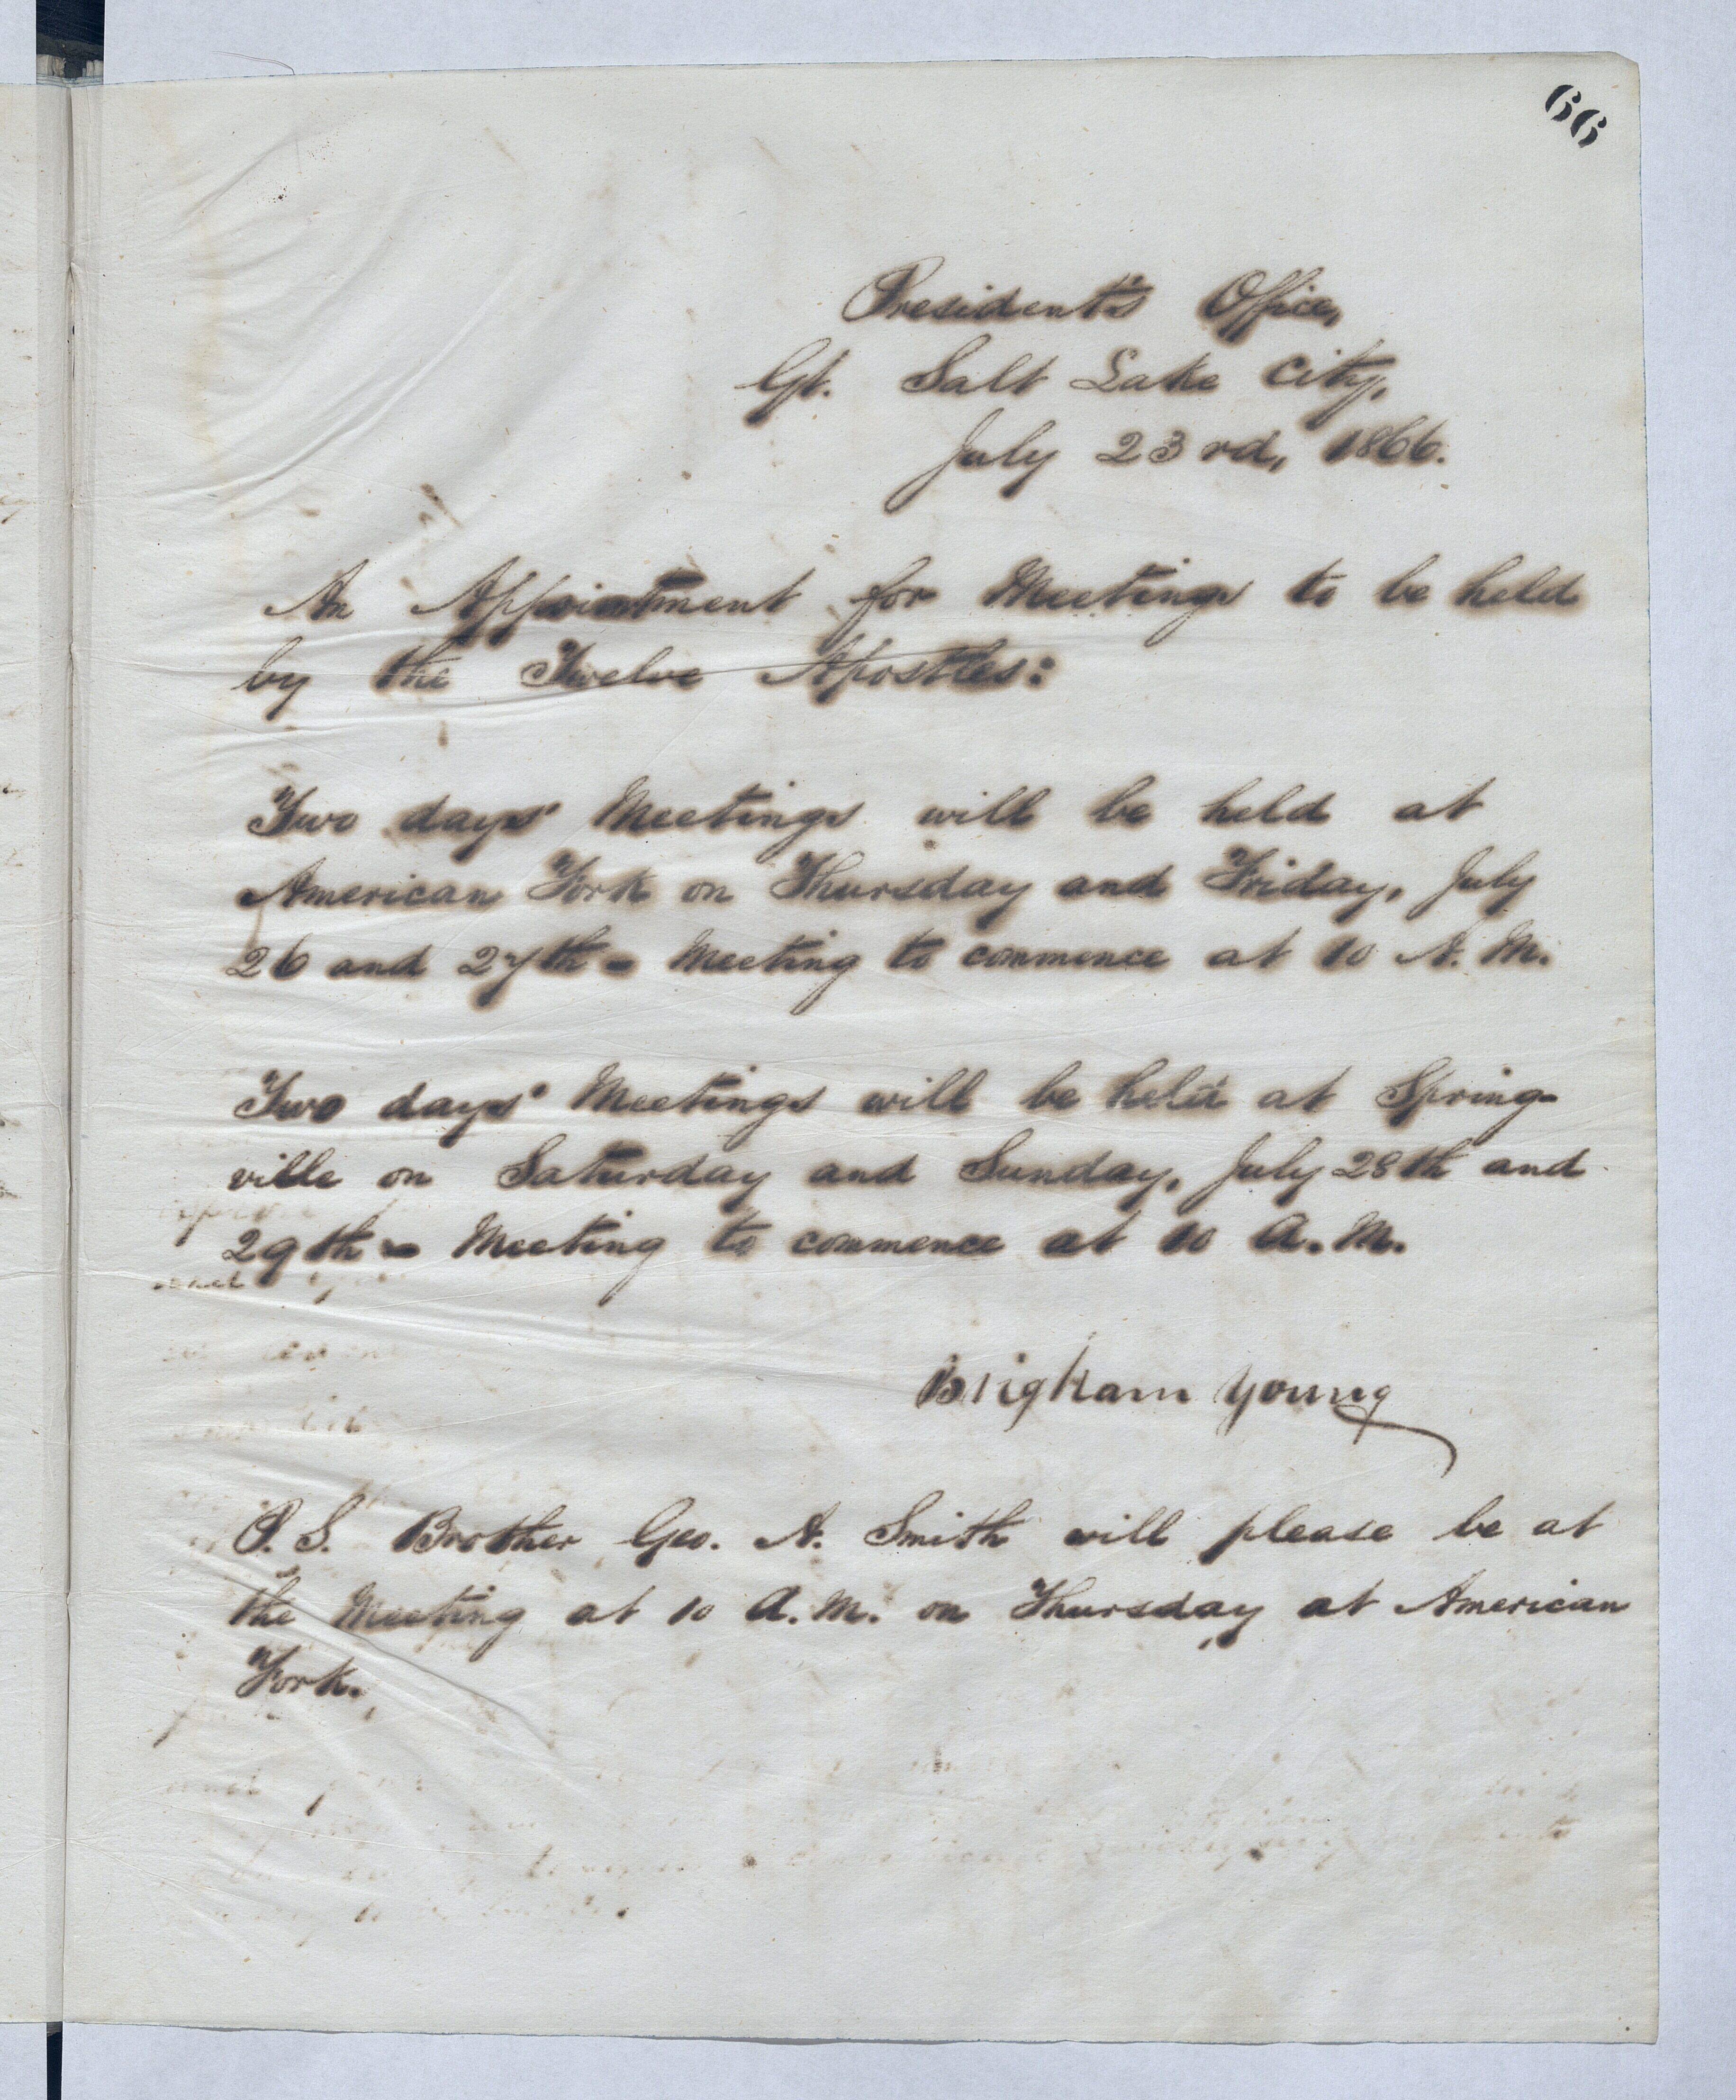 66
President's Office,
Gt. Salt Lake City,
July 23rd, 1866.
An Appointment for Meetings to be held
by the Twelve Apostles:
Two days' Meetings will be held at
American Fork on Thursday and Friday, July
26 and 27th - Meeting to commence at 10 A. M.
Two days' Meetings will be held at Spring-
ville on Saturday and Sunday, July 28th and
29th - Meeting to commence at 10 A. M.
Brigham Young
P. S. Brother Geo. A. Smith will please be at
the Meeting at 10 A. M. on Thursday at American
Fork.